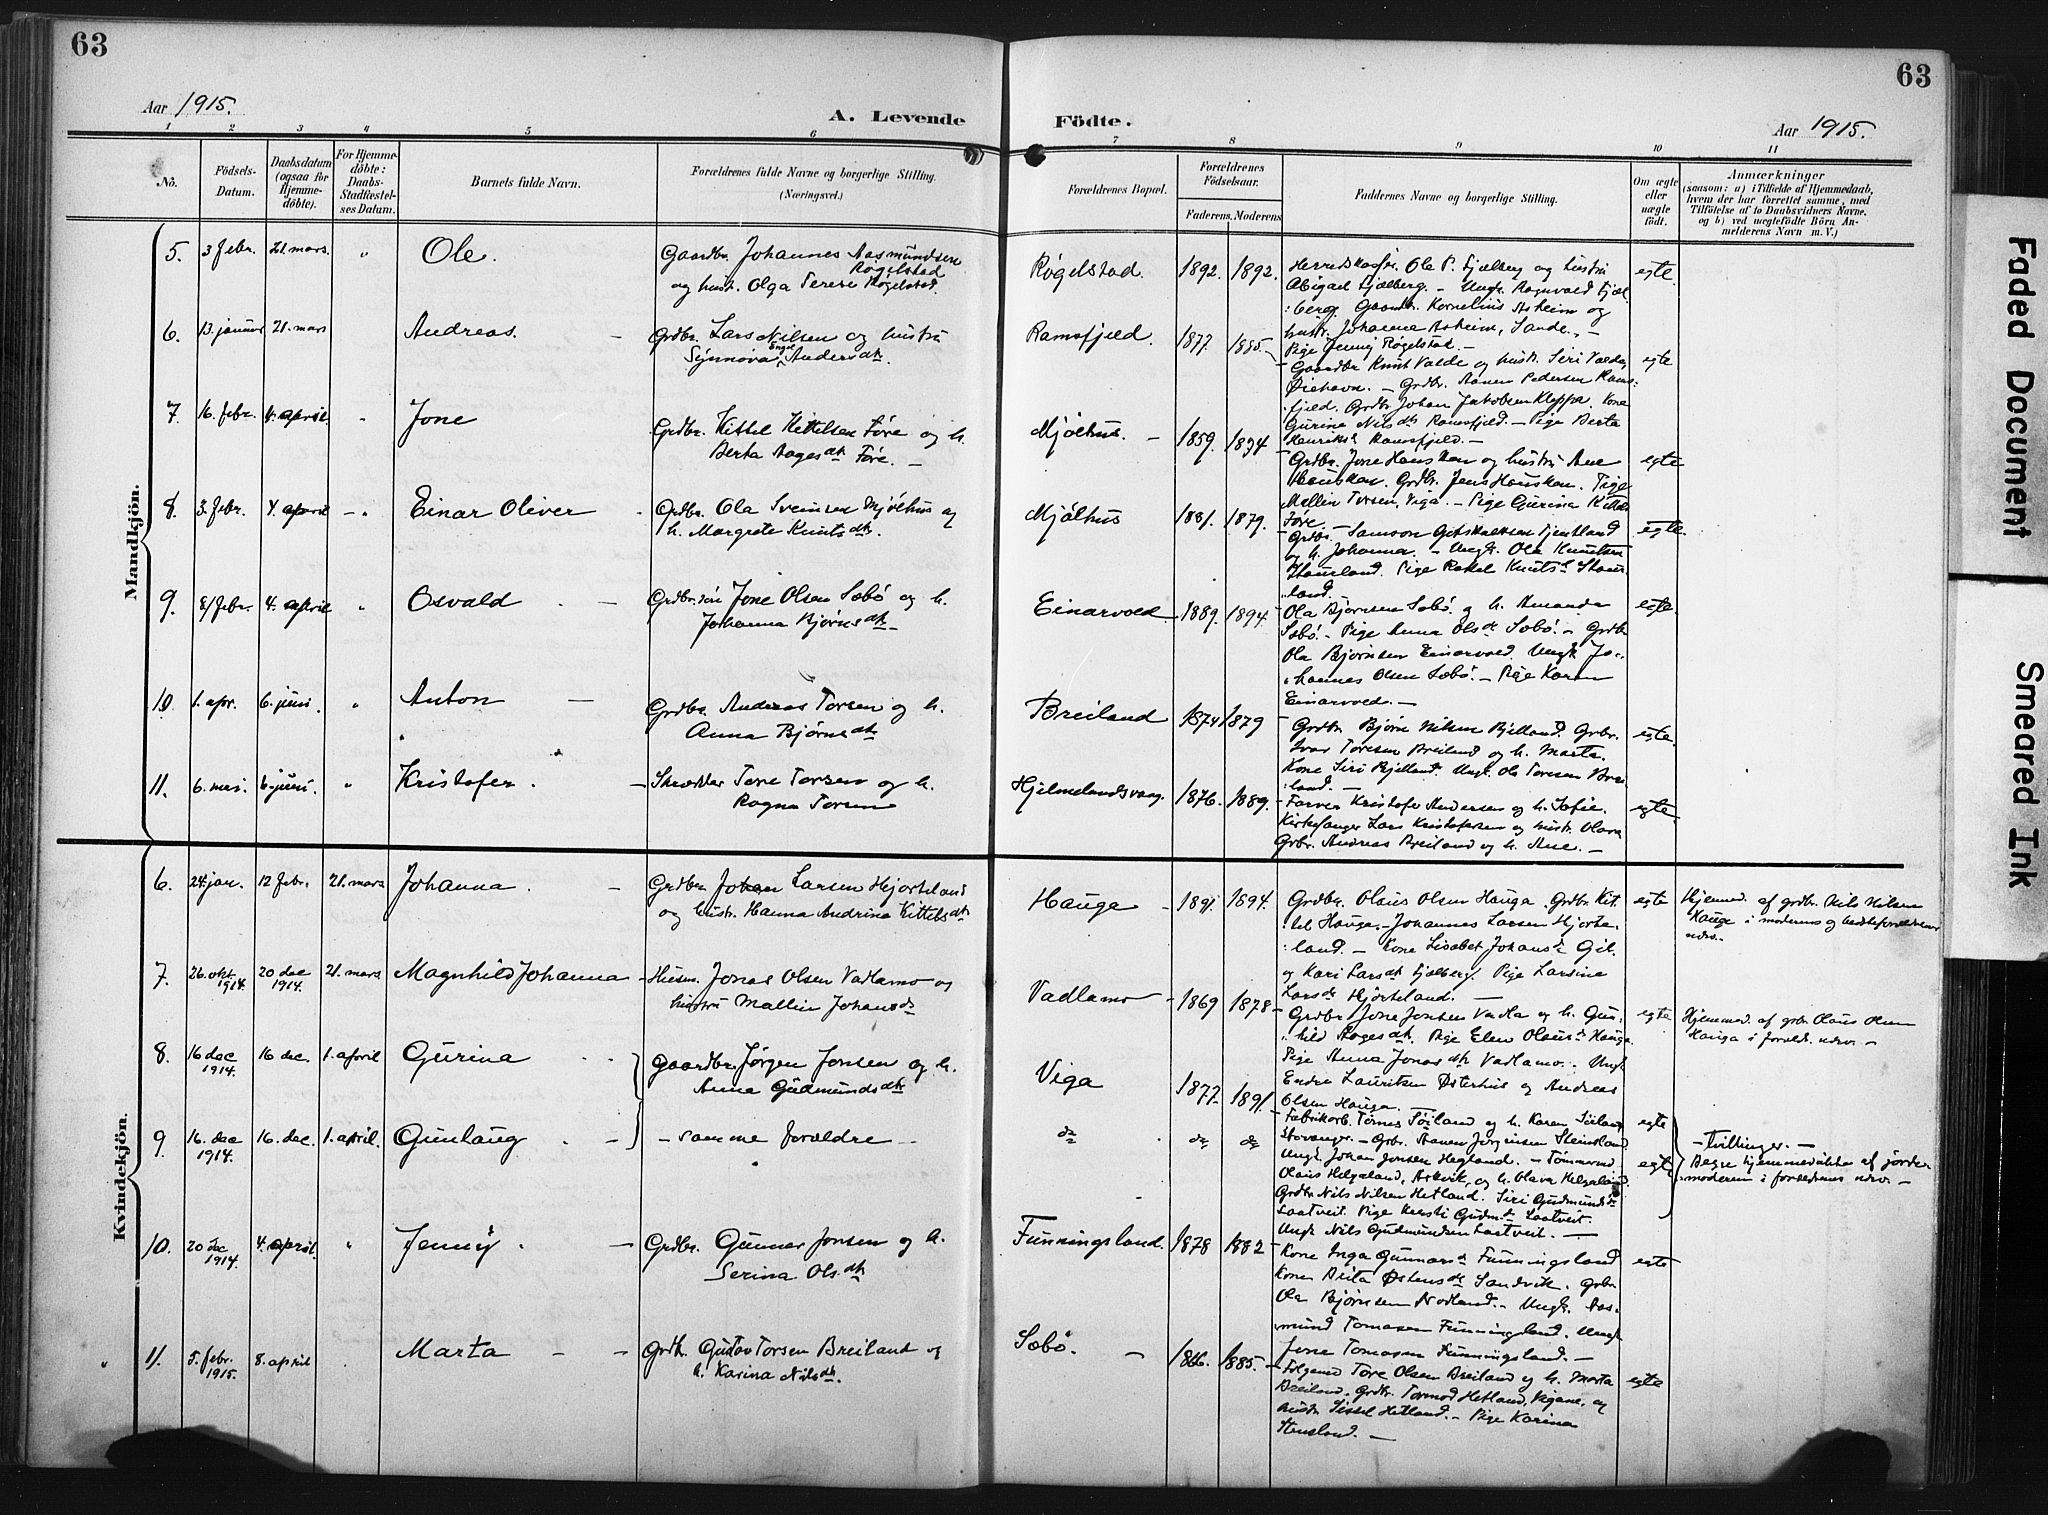 63
63
Aar 1915.
A. Levende Födte.
Aar 1915.
1 2 3 4 5 6 7 8 9 10 11
No.
Födsels-Datum.
Daabsdatum (ogsaa for Hjemmedöbte).
For Hjemmedöbte: Daabs-Stadfæstelses Datum.
Barnets fulde Navn.
Forældrenes fulde Navne og borgerlige Stilling. (Næringsvei.)
Forældrenes Bopæl.
Forældrenes Födselsaar.
Faderens. Moderens.
Faddernes Navne og borgerlige Stilling.
Om ægte eller uægte födt.
Anmærkninger
(saasom: a) i Tilfælde af Hjemmedaab, hvem der har forrettet samme, med Tilföielse af to Daabsvidners Navne, og b) ved uægtefödte Börn Anmelderens Navn m. V.)
Mandkjön.
5. 3 febr. 21. mars. " Ole.
Gaardbr. Johannes Aasmundsen Røgelstad
og hust. Olga Serese Røgelstad.
Røgelstad. 1892. 1892.
Herredskasfr. Ole P. Fjælberg og hustru
Abigael Fjælberg. – Ungk. Ragnvald Fjæl
:berg. Gaardbr. Kornelius Asheim og
hustr. Johanna Asheim, Sande. –
Pige Jenny Røgelstad. –
egte
6. 13. januar 21. mars Andreas. –
Grdbr. Lars Nilsen og hustru
Synnøva Engel Andersdtr.
Ramsfjeld. 1877. 1885.
Gaardbr Knut Valde og hustr. Siri Valde,
Øiehavn. – Grdbr. Aanen Pedersen Rams-
fjeld. Grdbr Johan Jakobsen Kleppa. Kone
Gurina Nilsdtr Ramsfjeld. – Pige Berta
Henriksd. Ramsfjeld. –
egte
7. 16. febr. 4. april. " Jone
Grdbr. Kittel Kittelsen Føre og h.
Berta Aagesdtr. Føre. –
Mjølhus. – 1859. 1874
Grdbr. Jone Hausken og hustru Ane
Hausken. Grdbr. Jens Hausken. Pige
Mallin Torsen, Viga. – Pige Gurina Kittelsd
Føre. –
egte
8. 3. febr. 4. april – " Einar Oliver
Grdbr. Ola Sveinsen Mjølhus og
h. Margrete Knutsdtr.
Mjølhus 1881. 1879.
Grdbr. Samson Gotskalksen Tjentland
og h. Johanna. – Ungk. Ola Knutsen
Haurland. Pige Rakel Knutsd
land.
egte.
9. 8/febr. 4. april " Osvald . –
Grdbr.søn Jone Olsen Sæbø og h.
Johanna Bjørnsdtr. –
Einarvold – 1889. 1894.
Ola Bjørnsen Sæbø. og h. Amanda
Sæbø. – Pige Anna Olsd Sæbø. – Grdbr
Ola Bjørnsen Einarvold. Ungk. Jo-
hannes Olsen Sæbø. – Pige Karen
Einarvold. –
egte.
10. 1. apr. 6. juni. " Anton –
Grdbr. Andreas Torsen og h.
Anna Bjørnsdtr.
Breiland 1874 1879
Grdbr. Bjørn Nilsen Bjelland. Grbr.
Ivar Toresen Breiland og h. Marta.
Kone Siri Bjelland. Ungk. Ole Toresen Brei
:land. –
egte.
11. 6. mai. 6. juni. " Kristofer . –
Skrædder Tore Torsen og h.
Ragna Torsen
Hjelmelandsvaag. 1876. 1889.
Farver Kristofer Andersen og h. Sofie.
Kirkesanger Lars Kristofersen og hustr. Olava
Grbr. Andreas Breiland og h. Ane. –
egte.
Kvindekjön.
6. 24. jan. 12 febr. 21. mars Johanna . –
Grdbr. Johan Larsen Hjorteland
og hust. Hanna Andrina Kittelsdtr
Hauga – 1891. 1894.
Grdbr. Olaus Olsen Hauga. Grdbr. Kit-
tel Hauga. – Johannes Larsen Hjorte:
:land. – Kone Lisabet Johansdr
og Kari Larsdtr Fjælberg. Pige Larsine
Larsdr Hjorteland. –
egte
Hjemmed. af grdbr. Nils Nilsen
Hauge i moderens og bedsteforældrenes
nærv. –
7. 26. okt. 1914. 20 dec 1914. 21. mars Magnhild Johanna –
Husm. Jonas Olsen Vadlamo og
hustru Mallin Johansdr
Vadlamo – 1869 1878 –
Grdbr Jone Jonsen Vadla og h. Gun-
hild Aagesdtr. Pige Elen Olausd Hauga.
Pige Anna Jonasdtr Vadlamo. Ungk
Endre Lauritsen Østerhus og Andreas
Olsen Hauga.
egte
Hjemmed. af grbr. Olaus Olsen
Hauga i foræld. nærv. –
8. 16 dec 1914. 16 dec. 1. april Gurina . .
Gaardbr Jørgen Jonsen og h.
Anna Gudmundsdtr
Viga 1877. 1891.
Fabrikarb. Tørres Søiland og h. Karen Søiland
Stavanger. – Grbr. Aanen Jørgensen Steinsland.
Ungk. Johan Jonsen Hegland. – Tømmermd
Olaus Helgaland, Arkvik, og h. Olava Helgaland.
Grdbr. Nils Nilsen Hetland. Siri Gudmundsd
Laatveit. Pige Kersti Gudmd Laatveit.
Ungk. Nils Gudmundsen Laatveit. –
egte
9 16. dec 1914. 16. dec. 1. april. Gunlaug . –
– samme forældre –
do do do
egte
– tvillinger. –
Begge hjemmedøbte af jorde-
moderen i forældrenes nærv. –
10. 20 dec 1914. 4. april. " Jenny . –
Grdbr. Gunnar Jonsen og h.
Serina Olsdtr
Funningsland. 1878 1882 –
Kone Inga Gunnarsd Funningsland
Kone Brita Østensdr Sandvik. Grbr.
Ola Bjørnsen Nodland. – Ungk. Aas-
mund Tomasen Funningsland. Ungk
Jone Tomasen Funningsland. –
egte
" 11. 5. febr. 1915. 8. april Marta – –
Grdbr. Gustav Torsen Breiland og
h. Karina Nilsdtr.
Sæbø. – 1886. 1885. –
Følgemd Tore Olsen Breiland og h. Marta
Breiland. Grdbr. Tormod Hetland, Vigane, og
hustr. Sissel Hetland. – Pige Karina
Hensland. –
egte
Faded Document
Smeared Ink